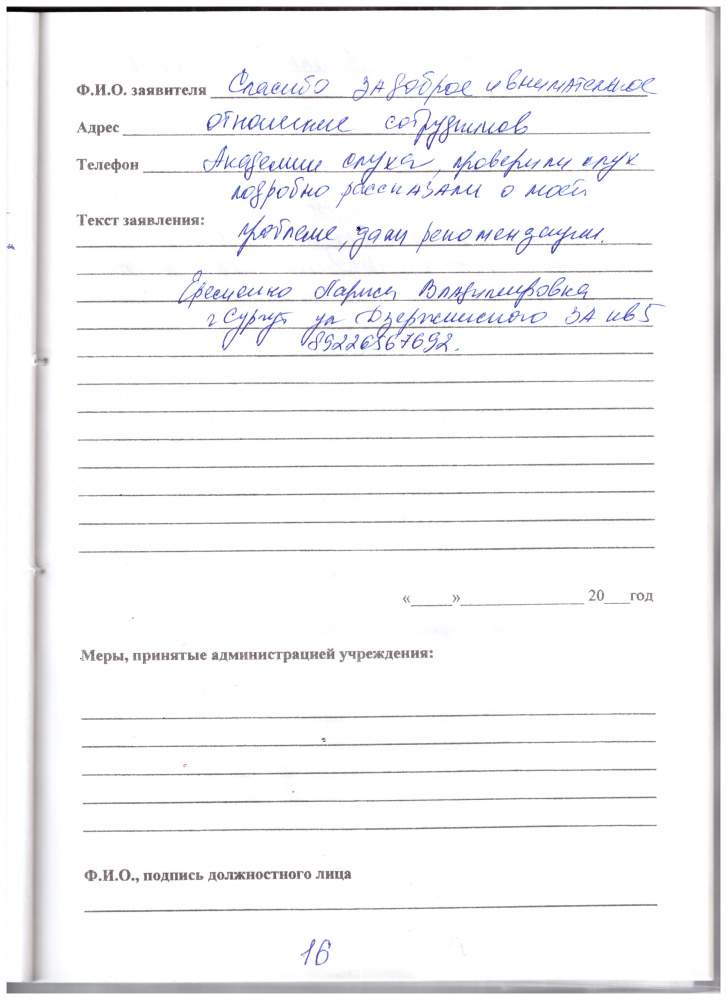 Ф.И.О. заявителя Спасибо за доброе и внимательное
Адрес отношение сотрудников
Телефон Академии слуха, проверили слух
подробно рассказали о моей
Текст заявления:
проблеме, дали рекомендации.
Еременко Лариса Владимировна
г Сургут ул Дзержинского 3А кв 5
89226567692.
«_____»_______________ 20___год
Меры, принятые администрацией учреждения:
Ф.И.О., подпись должностного лица
16